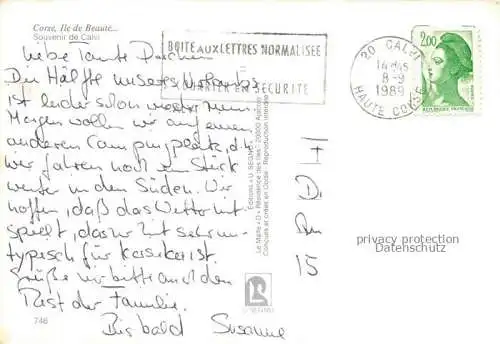 Corse, Ile de Beauté...
Souvenir de Calvi
Liebe Tante
Die Hälfte unseres Urlaubs
ist leider schon wieder
Morgen wollen wir auf einen
anderen Campingplatz, d.h.
wir fahren noch ein Stück
weiter in den Süden. Wir
hoffen, daß das Wetter mit
spielt, das zur Zeit sehr un-
typisch für Korsika ist.
Grüße bitte auch den
Rest der Familie.
Bis bald Susanne
746
BOITE AUX LETTRES NORMALISEE
COURRIER EN SECURITE
20 CALVI
14H45
8-9
1989
HAUTE CORSE
2,00
Editions « U. SEGNA »
Le Maite « D » Résidence des Iles - 20000 Ajaccio
Conçues et créées en Corse - Reproduction interdite
15
privacy protection
Datenschutz